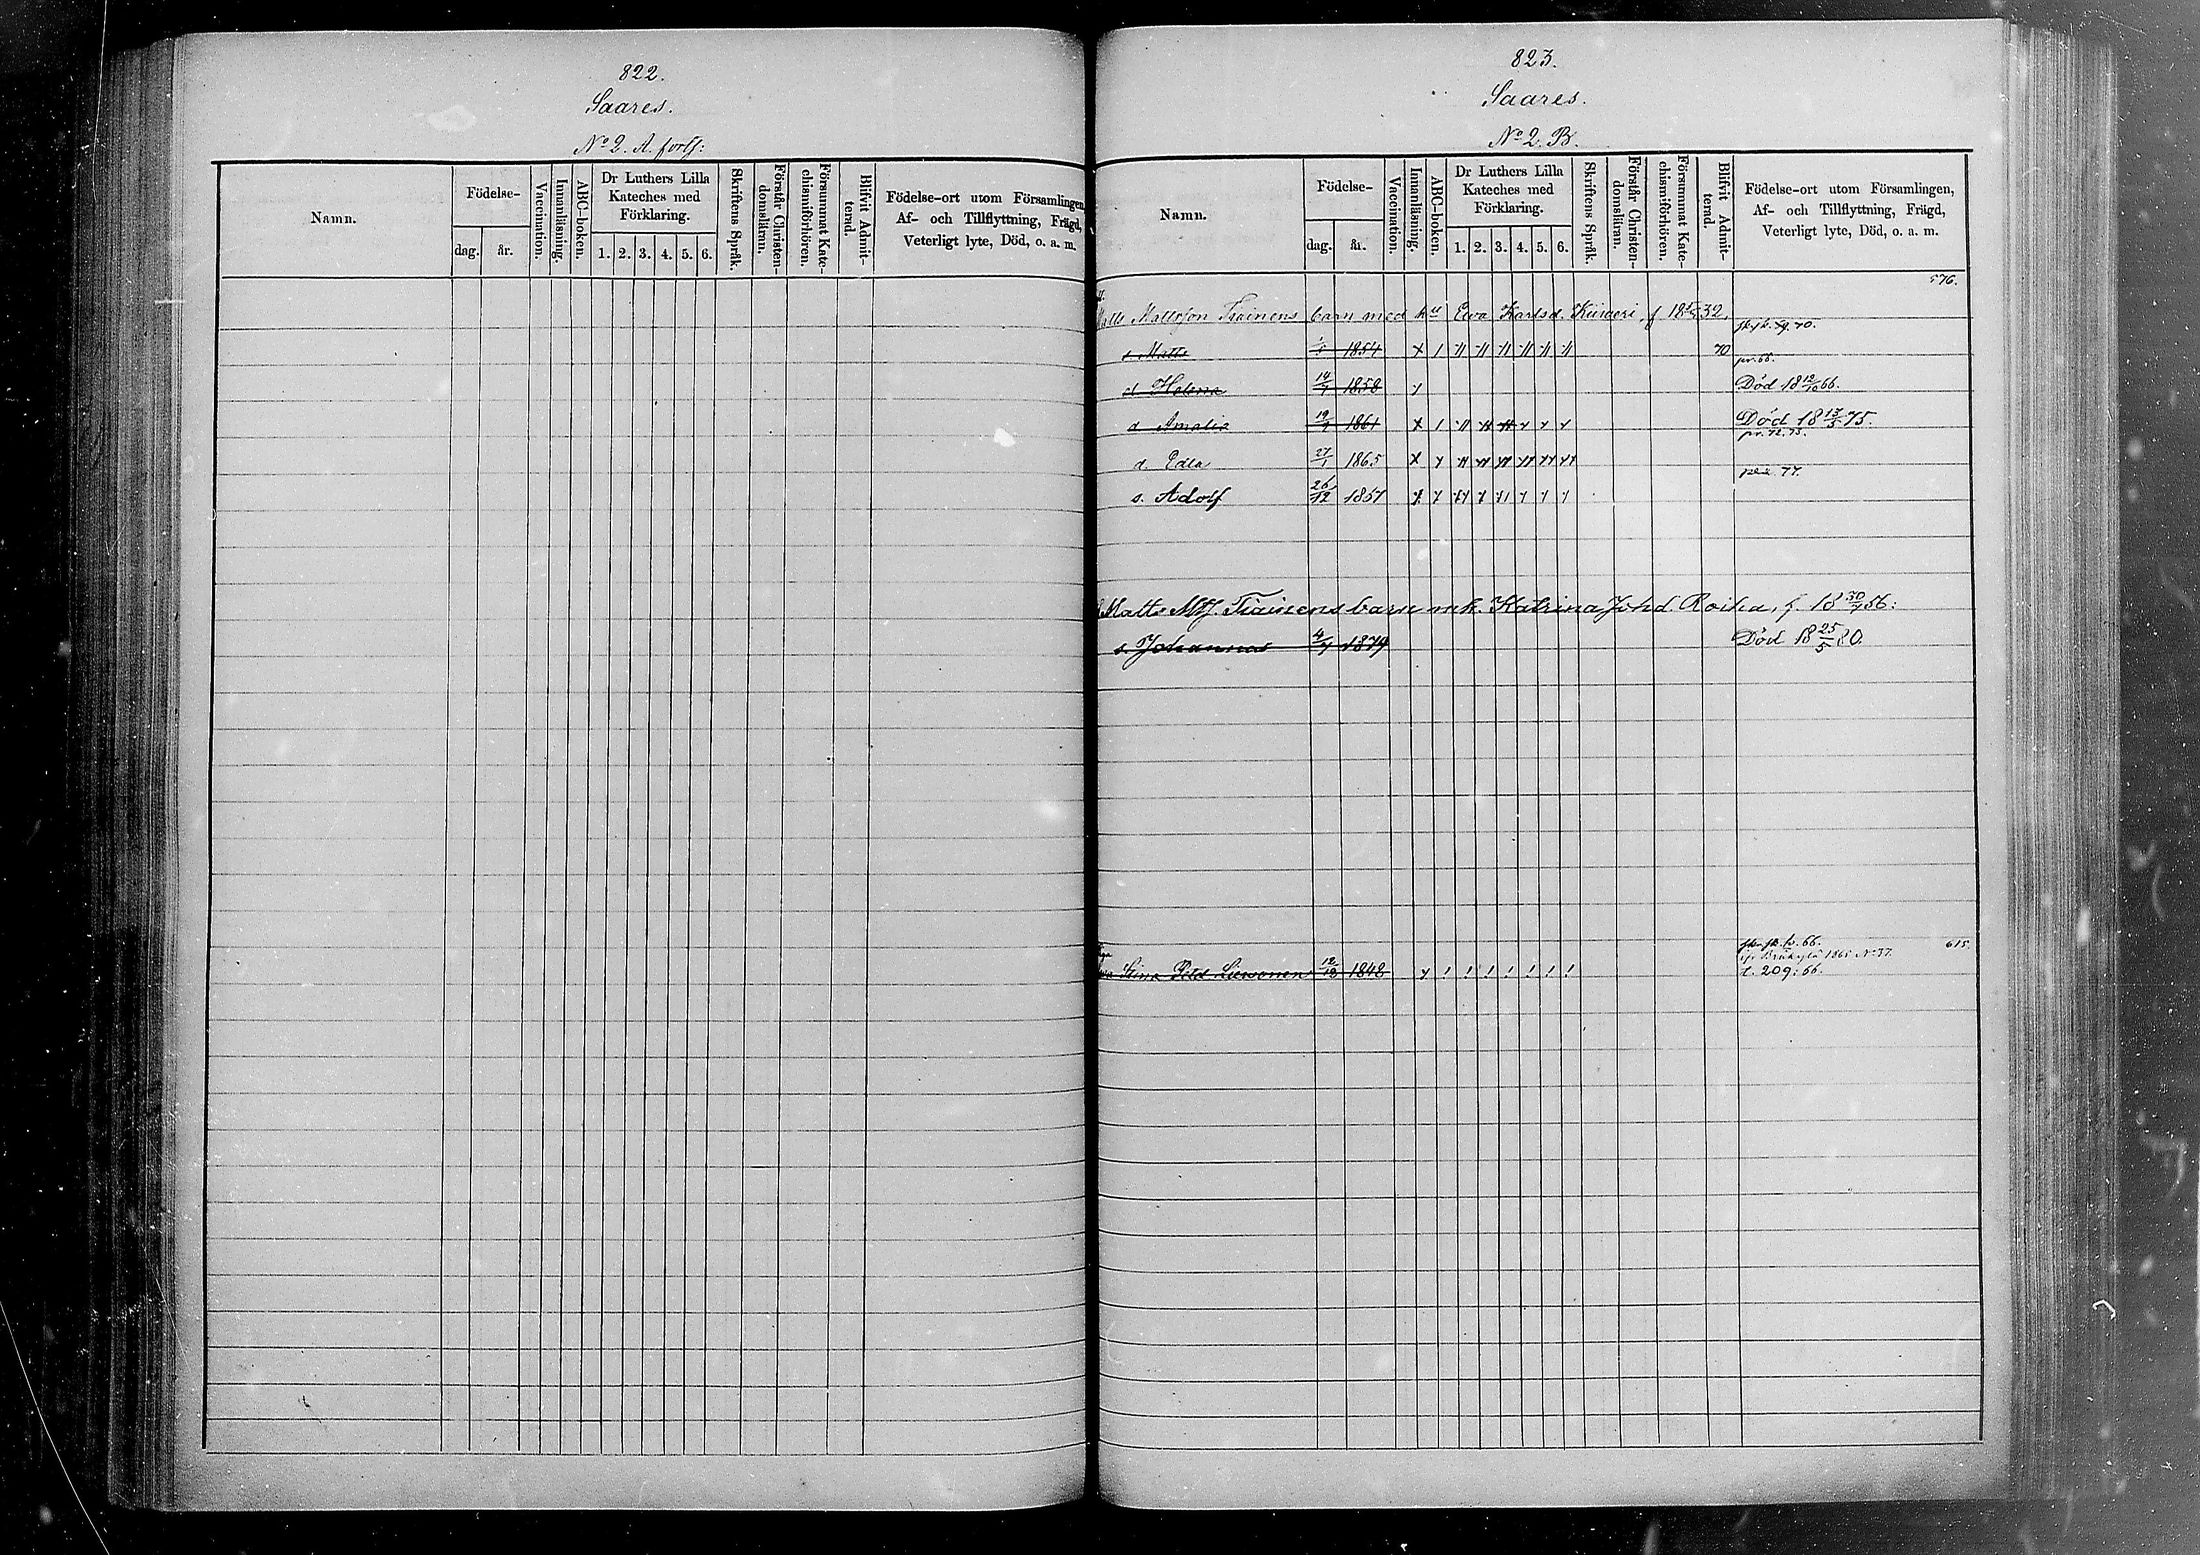 822.
Saares.
No 2. A. forts:
Namn.
Födelse-
dag. år.
Vaccination.
Innanläsning.
ABC-boken.
Dr Luthers Lilla Kateches med Förklaring.
1. 2. 3. 4. 5. 6.
Skriftens Språk.
Förstår Christendomsläran.
Försummat Katechismiförhören.
Blifvit Admitterad.
Födelse-ort utom Församlingen,
Af- och Tillflyttning, Frägd,
Veterligt lyte, Död, o. a. m.
823.
Saares.
No 2. B.
Namn.
Födelse-
dag. år.
Vaccination.
Innanläsning.
ABC-boken.
Dr Luthers Lilla Kateches med Förklaring.
1. 2. 3. 4. 5. 6.
Skriftens Språk.
Förstår Christendomsläran.
Försummat Katechismiförhören.
Blifvit Admitterad.
Födelse-ort utom Församlingen,
Af- och Tillflyttning, Frägd,
Veterligt lyte, Död, o. a. m.
576.
Matts Mattsson Tiainens barn med hu Ewa Karlsd. 32.
s. Matts 1854 70
pr. 66.
d. Helena 14 1858 Död 18 12/10 66.
d. Amalia 19 1861 Död 18 13/3 75.
pr. 72. 73.
d. Edla 27/1 1865
77.
s. Adolf 26/12 1857
Matts Tiainens barn m h. Katrina Johd. Roiha, f. 18 56:
s. Johannes 4 1879 Död 18 25/5 80.
66. 615.
1865 No 37.
Stina Petd. 12/12 1848 t. 209: 66.